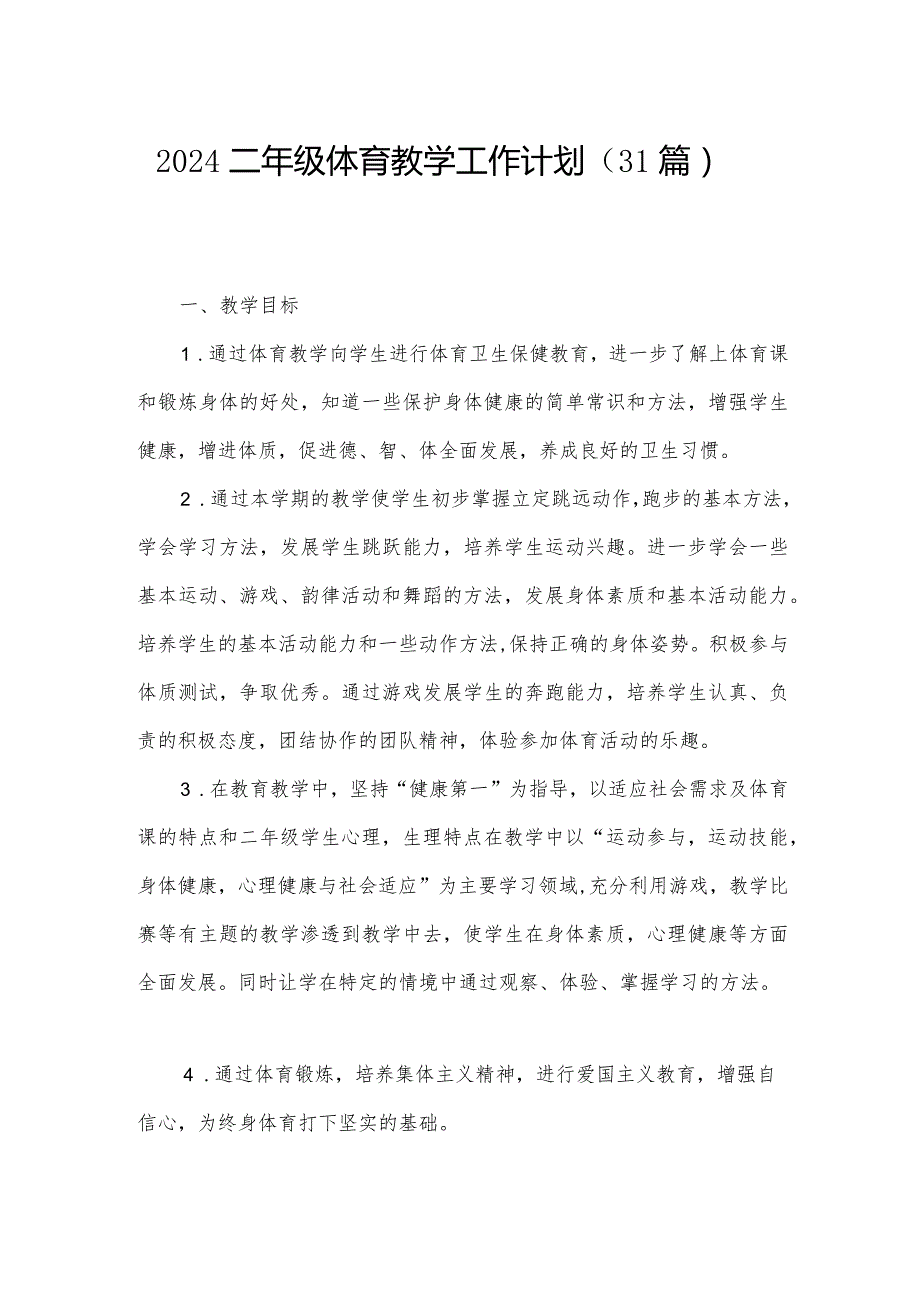 2024 二年级体育教学工作计划（31 篇）
一、教学目标
1．通过体育教学向学生进行体育卫生保健教育，进一步了解上体育课
和锻炼身体的好处，知道一些保护身体健康的简单常识和方法，增强学生
健康，增进体质，促进德、智、体全面发展，养成良好的卫生习惯。
2．通过本学期的教学使学生初步掌握立定跳远动作,跑步的基本方法，
学会学习方法，发展学生跳跃能力，培养学生运动兴趣。进一步学会一些
基本运动、游戏、韵律活动和舞蹈的方法，发展身体素质和基本活动能力。
培养学生的基本活动能力和一些动作方法,保持正确的身体姿势。积极参与
体质测试，争取优秀。通过游戏发展学生的奔跑能力，培养学生认真、负
责的积极态度，团结协作的团队精神，体验参加体育活动的乐趣。
3．在教育教学中，坚持“健康第一”为指导，以适应社会需求及体育
课的特点和二年级学生心理，生理特点在教学中以“运动参与，运动技能，
身体健康，心理健康与社会适应”为主要学习领域,充分利用游戏，教学比
赛等有主题的教学渗透到教学中去，使学生在身体素质，心理健康等方面
全面发展。同时让学在特定的情境中通过观察、体验、掌握学习的方法。
4．通过体育锻炼，培养集体主义精神，进行爱国主义教育，增强自
信心，为终身体育打下坚实的基础。